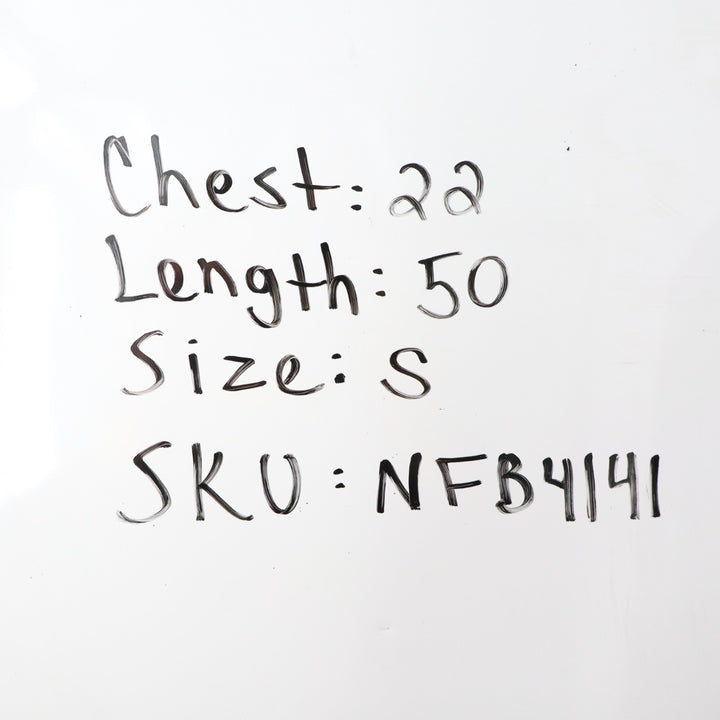 Chest: 22
Length: 50
Size: S
SKU: NFB4141